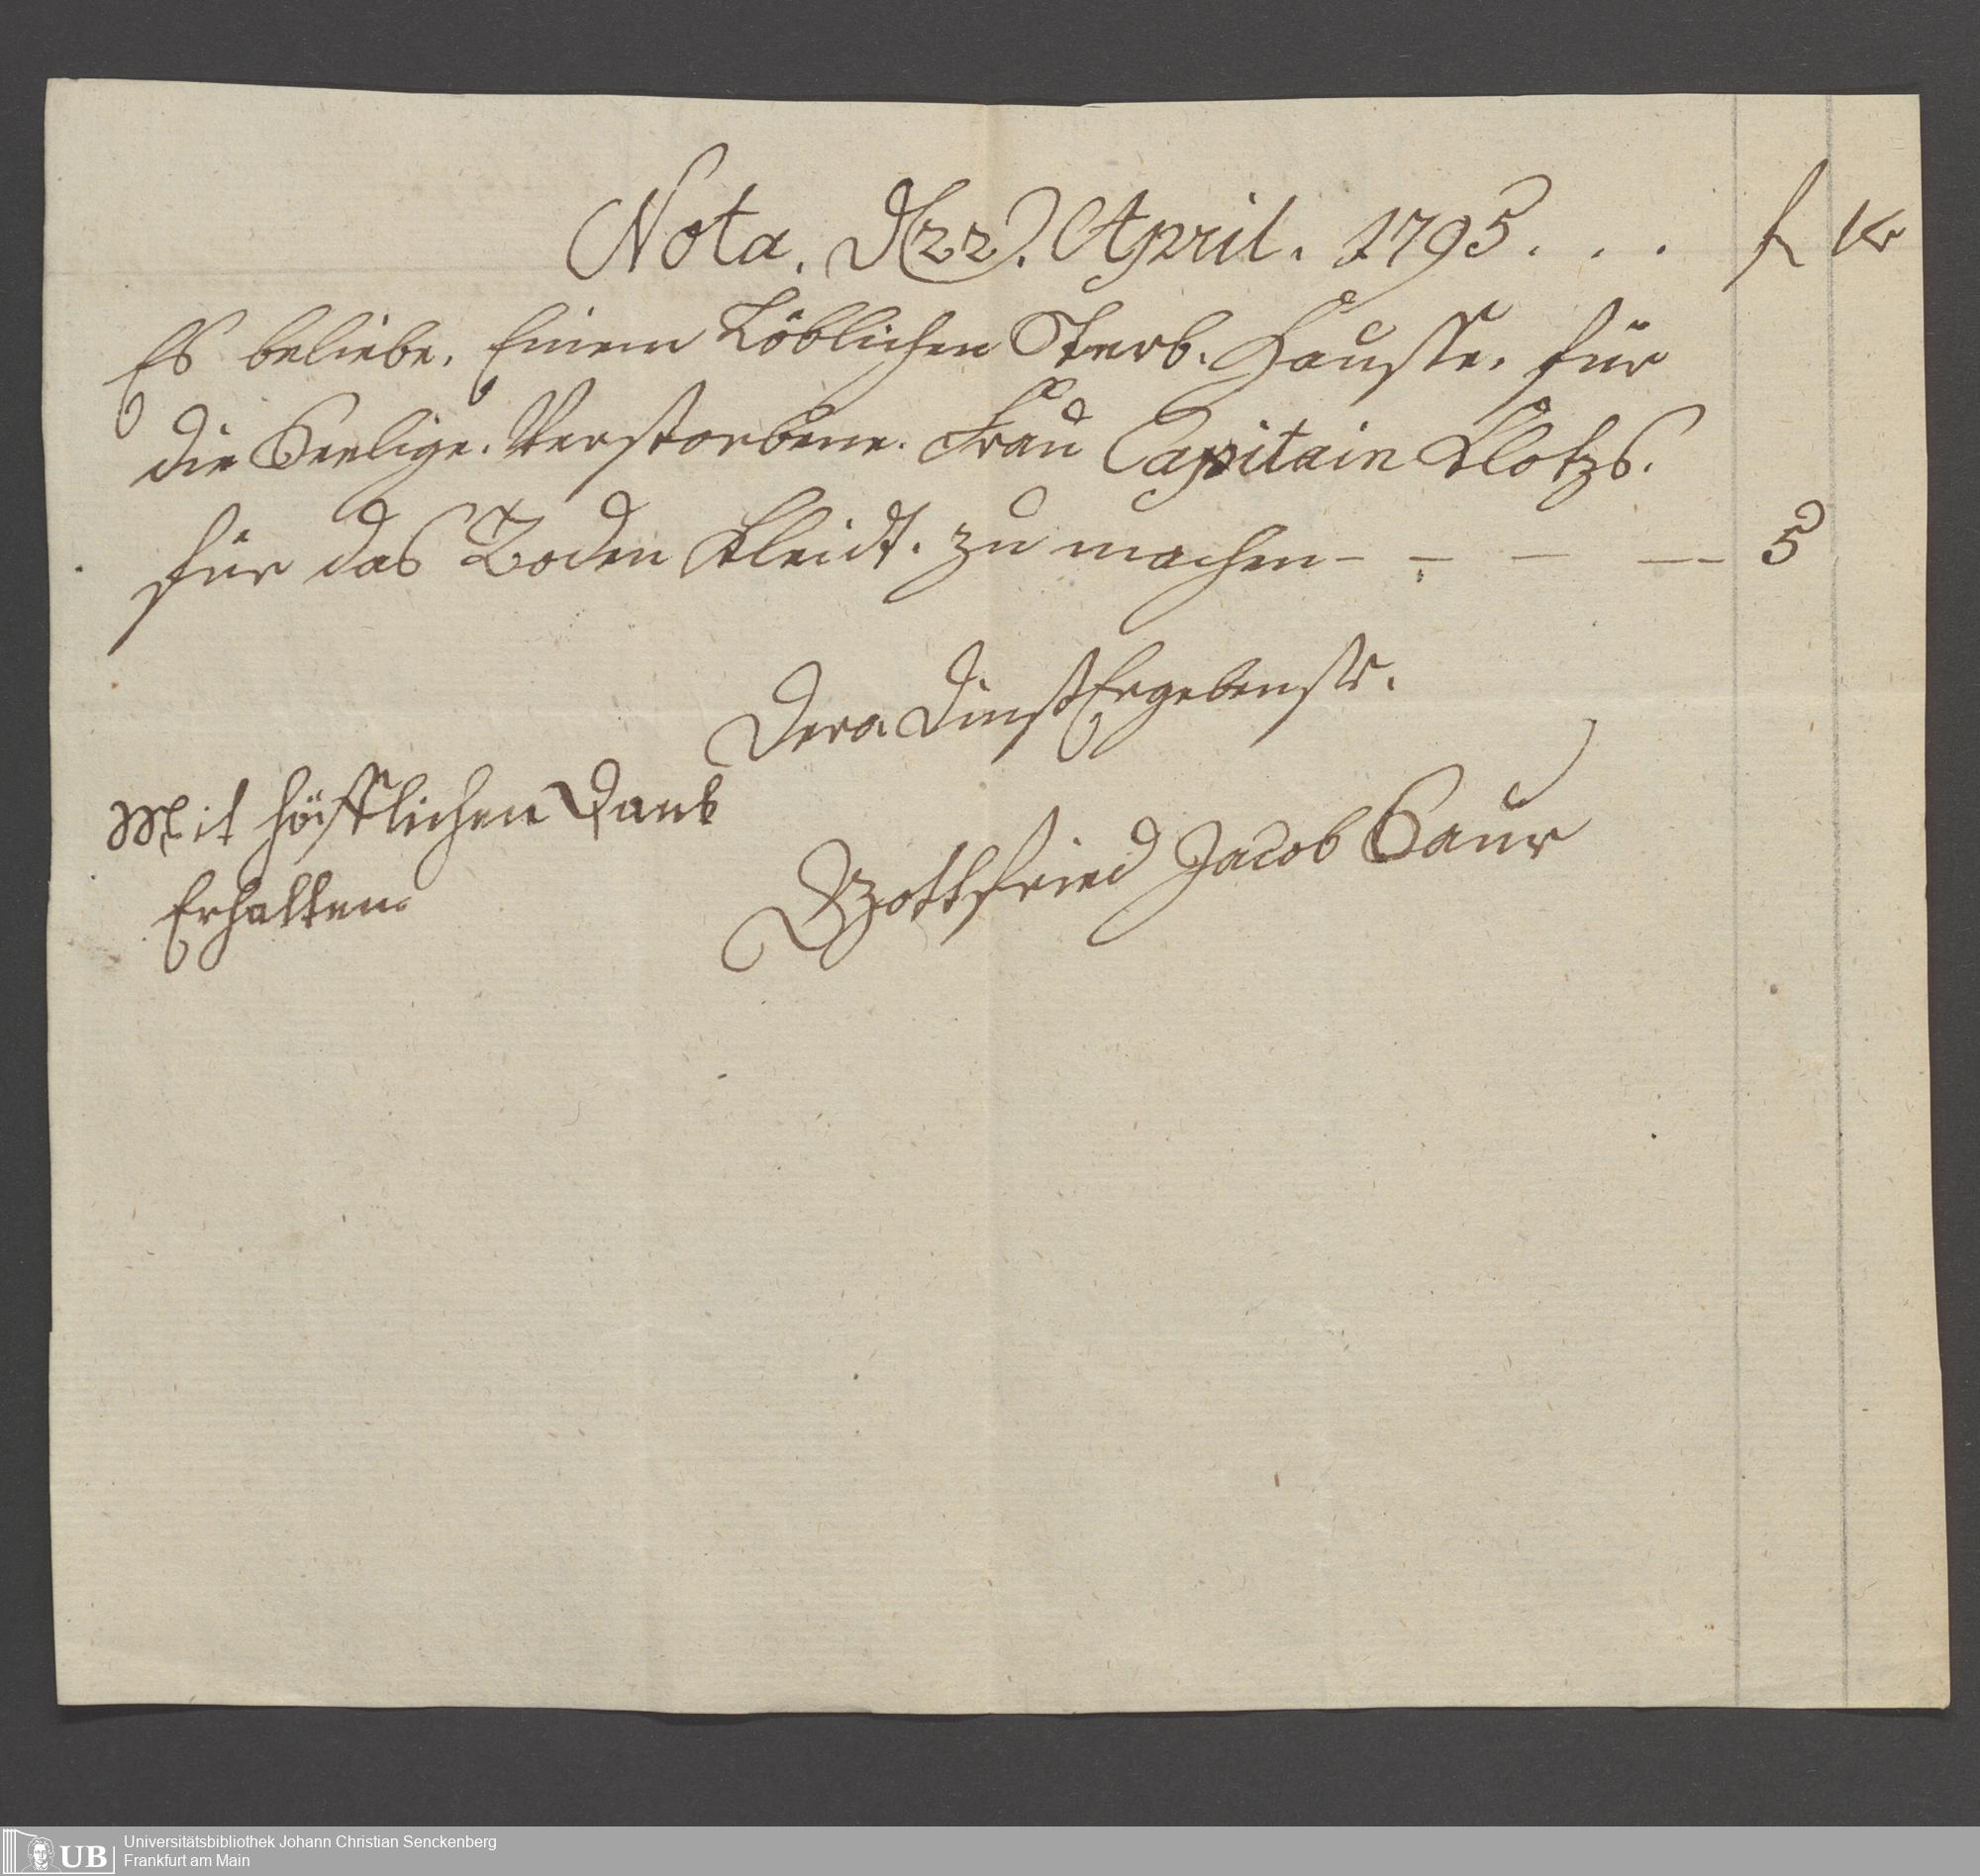 Nota. d 22. April. 1795 . . . f Kr
Es beliebe. Einem Löblichen Sterb. Hausse. für
die Seelige. Verstorbene. Frau Capitain Klotzs.
für das Boden Kleidt. zu machen - - - - 5
Dero DinstErgebenste.
Mit höfflichen Dank
Gottfried Jacob Saur
Erhalten.
UB
Universitätsbibliothek Johann Christian Senckenberg
Frankfurt am Main